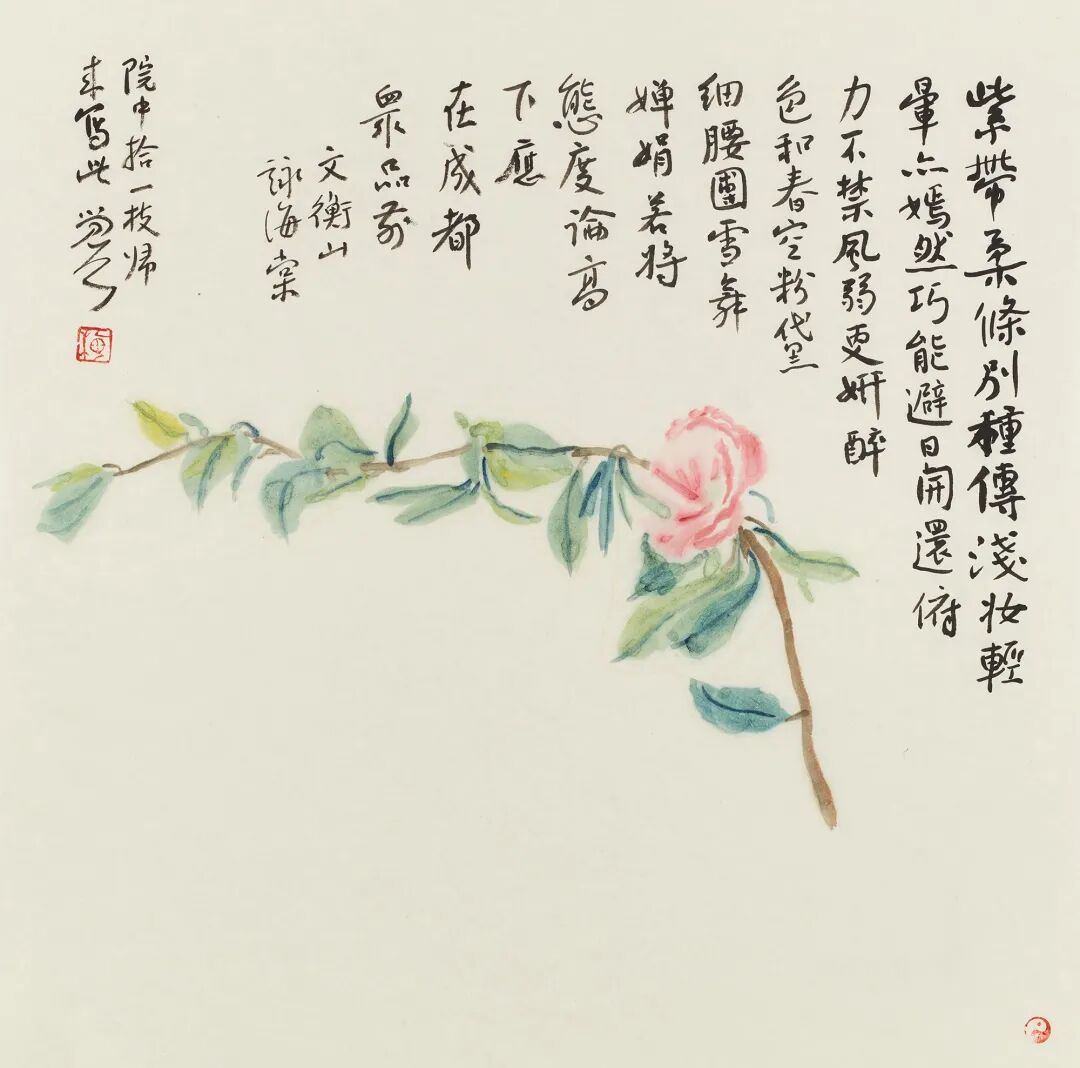 紫帶柔條別種傳淺妝輕
暈亦嫣然巧能避日開還俯
力不禁風弱更妍醉
色和春空粉黛
細腰團雪舞
嬋娟若將
態度論高
下應
在成都
眾品前
文衡山
詠海棠
院中拾一枝歸
來寫此